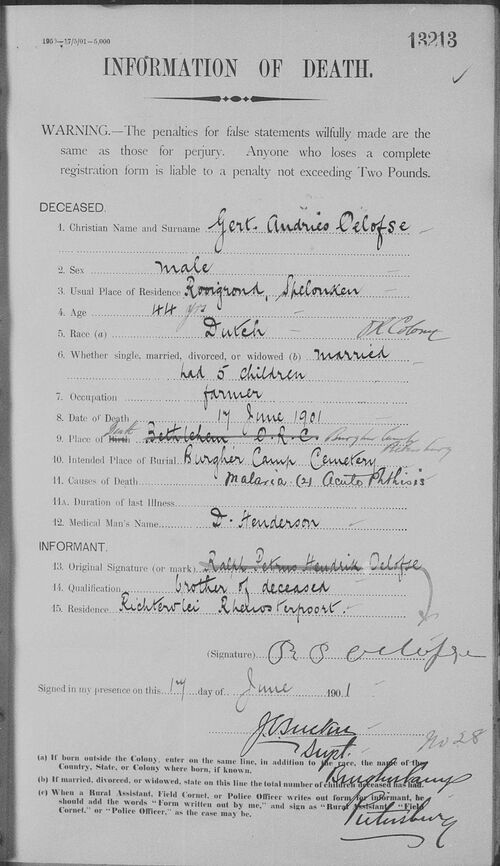 13213
INFORMATION OF DEATH.
WARNING.—The penalties for false statements wilfully made are the
same as those for perjury. Anyone who loses a complete
registration form is liable to a penalty not exceeding Two Pounds.
DECEASED.
1. Christian Name and Surname Gert Andries Oelofse
2. Sex male
3. Usual Place of Residence Rooigrond, Spelonken
4. Age 44 yrs
5. Race (a) Dutch OR Colony
6. Whether single, married, divorced, or widowed (b) married
had 5 children
7. Occupation farmer
8. Date of Death 17 June 1901
9. Place of Death Bethlehem O.R.C. Burgher Camp Pietersburg
10. Intended Place of Burial Burgher Camp Cemetery
11. Causes of Death Malaria (2) Acute Phthisis
11A. Duration of last Illness
12. Medical Man's Name D. Henderson
INFORMANT.
13. Original Signature (or mark) Ralph Petrus Hendrik Oelofse
14. Qualification brother of deceased
15. Residence Richtervlei Rhenosterpoort
(Signature) R P Oelofse
Signed in my presence on this 17 day of June 1901
Supt.
No 28
Burgher Camp
Pietersburg
(a) If born outside the Colony, enter on the same line, in addition to the race, the name of the
Country, State, or Colony where born, if known.
(b) If married, divorced, or widowed, state on this line the total number of children deceased has had.
(c) When a Rural Assistant, Field Cornet, or Police Officer writes out form for informant, he
should add the words "Form written out by me," and sign as "Rural Assistant," "Field
Cornet," or "Police Officer," as the case may be.